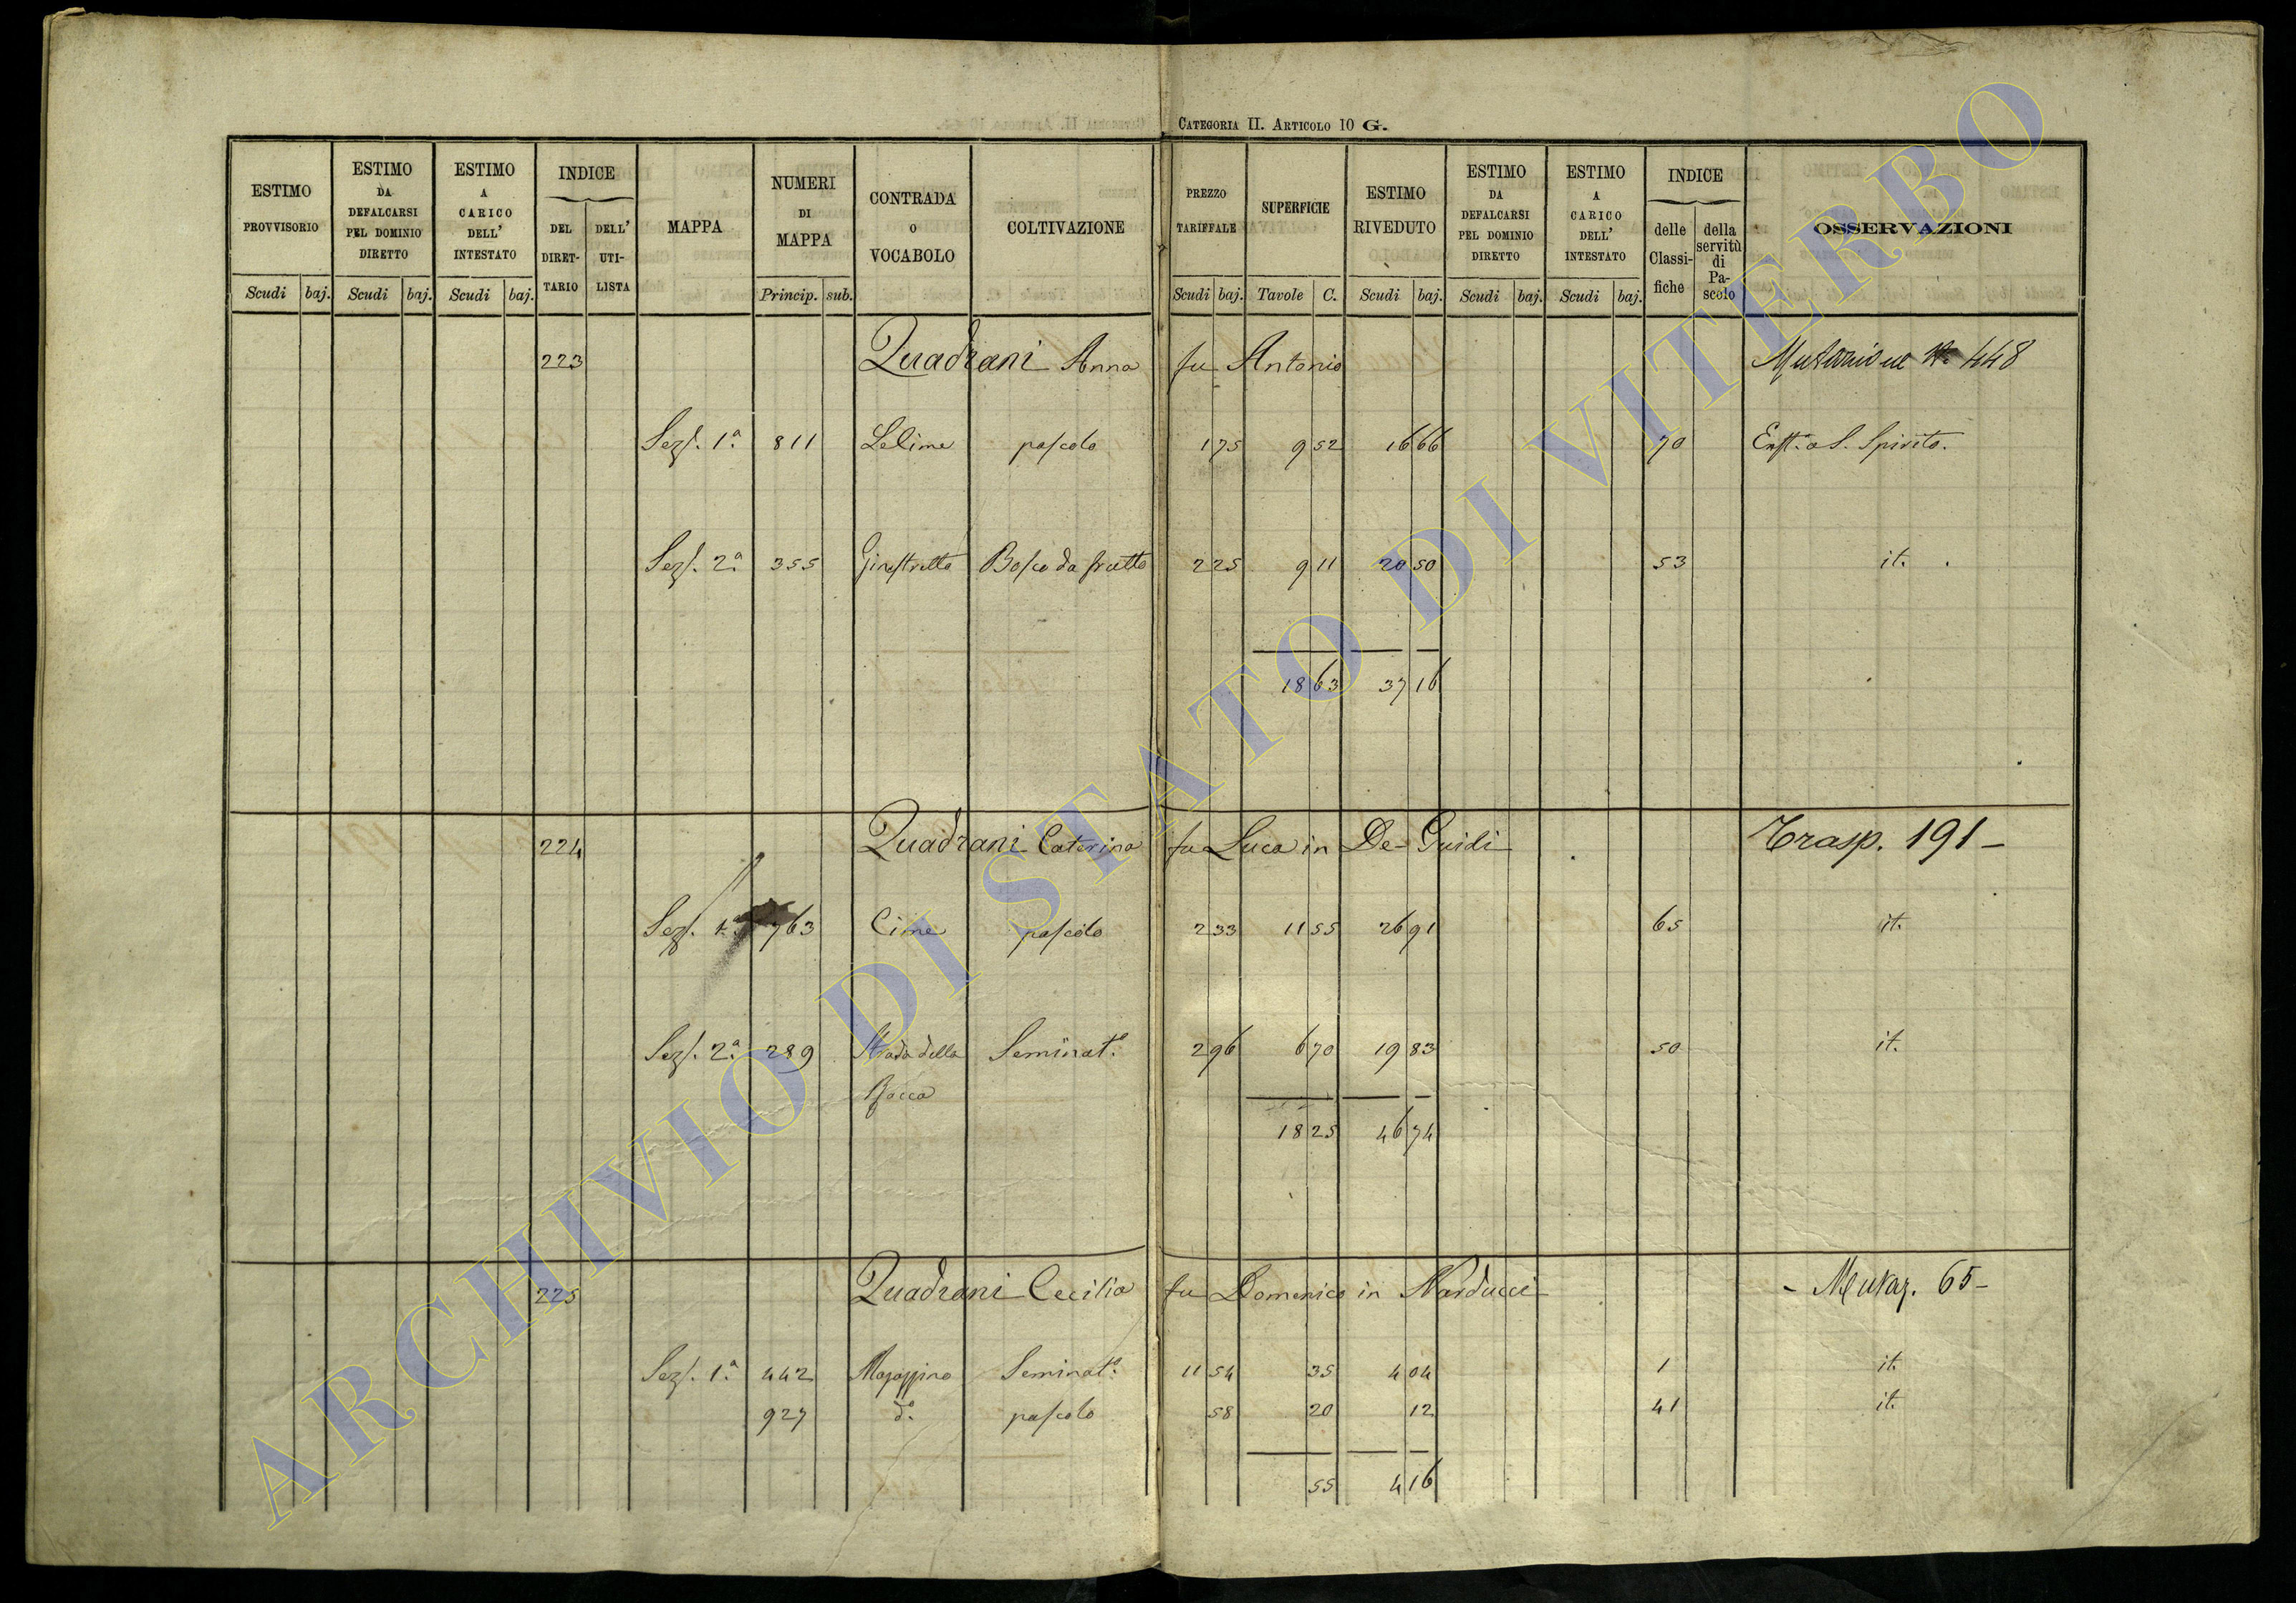 CATEGORIA II. ARTICOLO 10 G.
ESTIMO PROVVISORIO Scudi baj.
ESTIMO DA DEFALCARSI PEL DOMINIO DIRETTO Scudi baj.
ESTIMO A CARICO DELL' INTESTATO Scudi baj.
INDICE DEL DIRET-TARIO DELL' UTI-LISTA
MAPPA
NUMERI DI MAPPA Princip. sub.
CONTRADA O VOCABOLO
COLTIVAZIONE
PREZZO TARIFFALE Scudi baj.
SUPERFICIE Tavole C.
ESTIMO RIVEDUTO Scudi baj.
ESTIMO DA DEFALCARSI PEL DOMINIO DIRETTO Scudi baj.
ESTIMO A CARICO DELL' INTESTATO Scudi baj.
INDICE delle Classi-fiche della servitù di Pa-scolo
OSSERVAZIONI
223 Quadrani Anna fu Antonio 448
Sez. 1ª 811 pascolo 1 75 9 52 16 66 70 S. Spirito.
Sez. 2ª 355 Bosco da frutto 2 25 9 11 20 50 53 it.
18 63 37 16
224 Quadrani Caterina fu Luca in De-Guidi Trasp. 191-
Sez. 1ª 763 Cime pascolo 2 33 11 55 26 91 65 it.
Sez. 2ª 289 Strada della Seminatº 2 96 6 70 19 83 50 it.
Rocca
18 25 46 74
225 Quadrani Cecilia fu Domenico in Narducci - Mutaz. 65-
Sez. 1ª 442 Seminatº 11 54 35 4 04 1 it.
927 dº pascolo 58 20 12 41 it.
55 4 16
ARCHIVIO DI STATO DI VITERBO